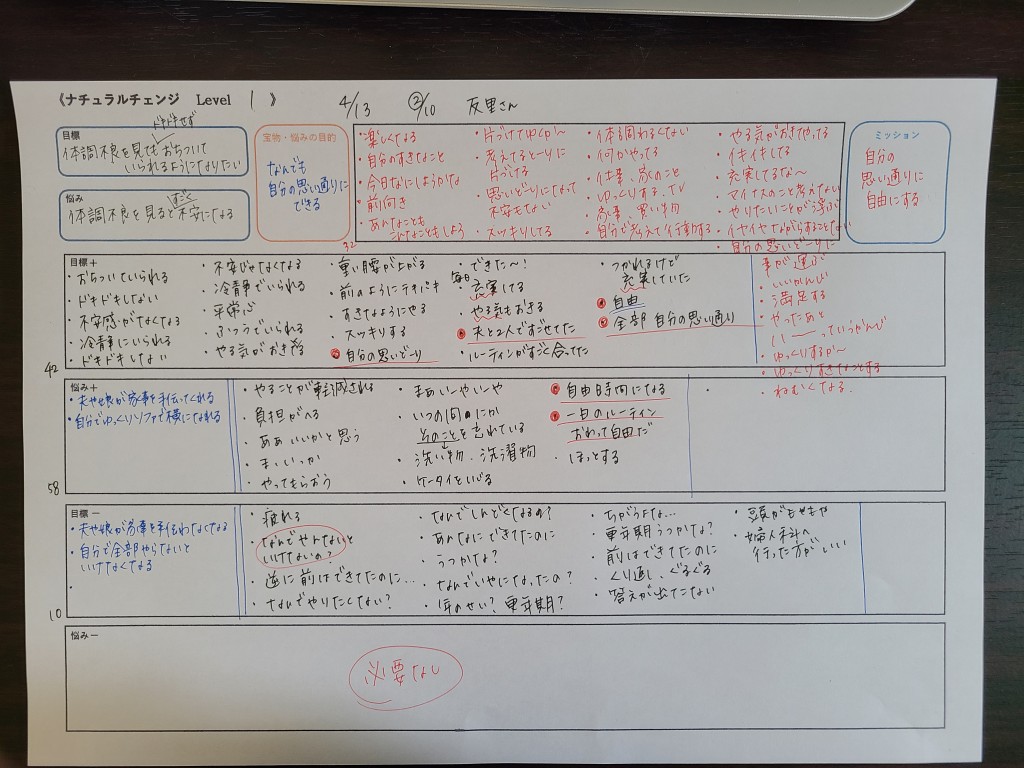 《ナチュラルチェンジ Level 1 》 4/13 ②/10 友里さん
目標
ドキドキせず
体調不良を見てもおちついて
いられるようになりたい
悩み
すごく
体調不良を見ると不安になる
宝物・悩みの目的
なんでも
自分の思い通りに
できる
・楽しくなる
・自分のすきなこと
・今日なにしようかな
・前向き
・あんなことも
こんなこともしよう
32
・片づけてゆくが〜
・考えてるとーりに
片づてる
・思いどーりになって
不安もない
・スッキリしてる
・体調わるくない
・何かやってる
・仕事、家のこと
・ゆっくりする、TV
・家事、買い物
・自分で考えて行動する
・やる気がおきてやってる
・イキイキしてる
・充実してるな〜
・マイナスのこと考えない
・やりたいことが浮ぶ
・イヤイヤながらすることない
・自分の思いどーりに
事が運ぶ
・いいかんじ
・満足する
・やったあと
い〜っていうかんじ
・ゆっくりするが〜
・ゆっくりすきなことする
・ねむくなる
ミッション
自分の
思い通りに
自由にする
目標+
・おちついていられる
・ドキドキしない
・不安感がなくなる
・冷静にいられる
・ドキドキしない
・不安じゃなくなる
・冷静でいられる
・平常心
・ふつうでいられる
・やる気がおきる
・重い腰が上がる
・前のようにテキパキ
・すきなようにやる
・スッキリする
自分の思いどーり
・できた〜!
毎日
・充実してる
・やる気もおきる
夫と2人ですごせてた
・ルーティンがすごく合ってた
・つかれるけど
充実していた
自由
全部 自分の思い通り
42
悩み+
・夫や娘が家事を手伝ってくれる
・自分でゆっくりソファで横になれる
・やることが軽減される
・負担がへる
・ああいいかと思う
・ま、いっか
・やってもらおう
・まあいーやいーや
・いつの間にか
そのことを忘れている
・洗い物、洗濯物
・ケータイをいじる
自由時間になる
一日のルーティン
おわって自由だ
・ほっとする
58
目標−
・夫や娘が家事を手伝わなくなる
・自分で全部やらないと
いけなくなる
・疲れる
・なんでせんないと
いけないの?
・逆に前はできてたのに…
・なんでやりたくない?
・なんでしんどくなるの?
・あんなにできてたのに
・うつかな?
・なんでいやになったの?
・年のせい? 更年期?
・ちがうよな…
・更年期うつかな?
・前はできてたのに
・くり返し、ぐるぐる
・答えが出てこない
・頭がもやもや
・婦人科へ
行った方がいい
10
悩み−
必要なし